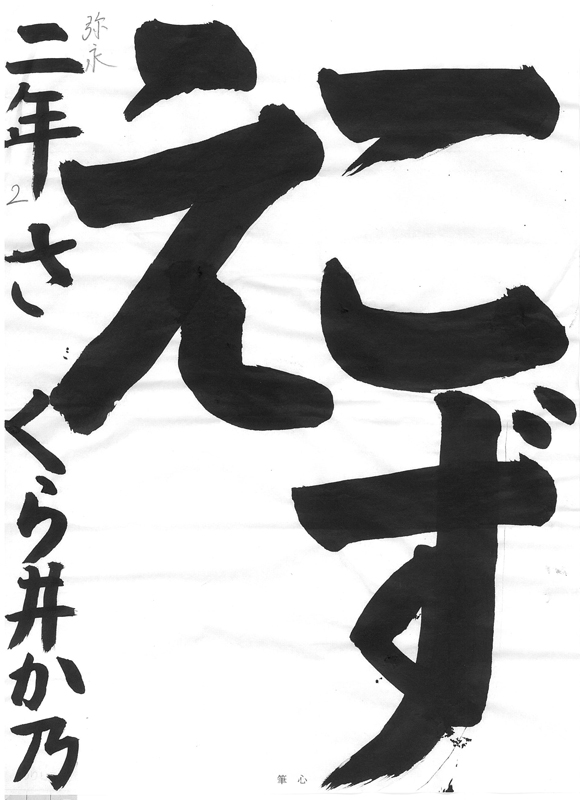 こず
え
弥永
二年 さくら井か乃
2
筆心